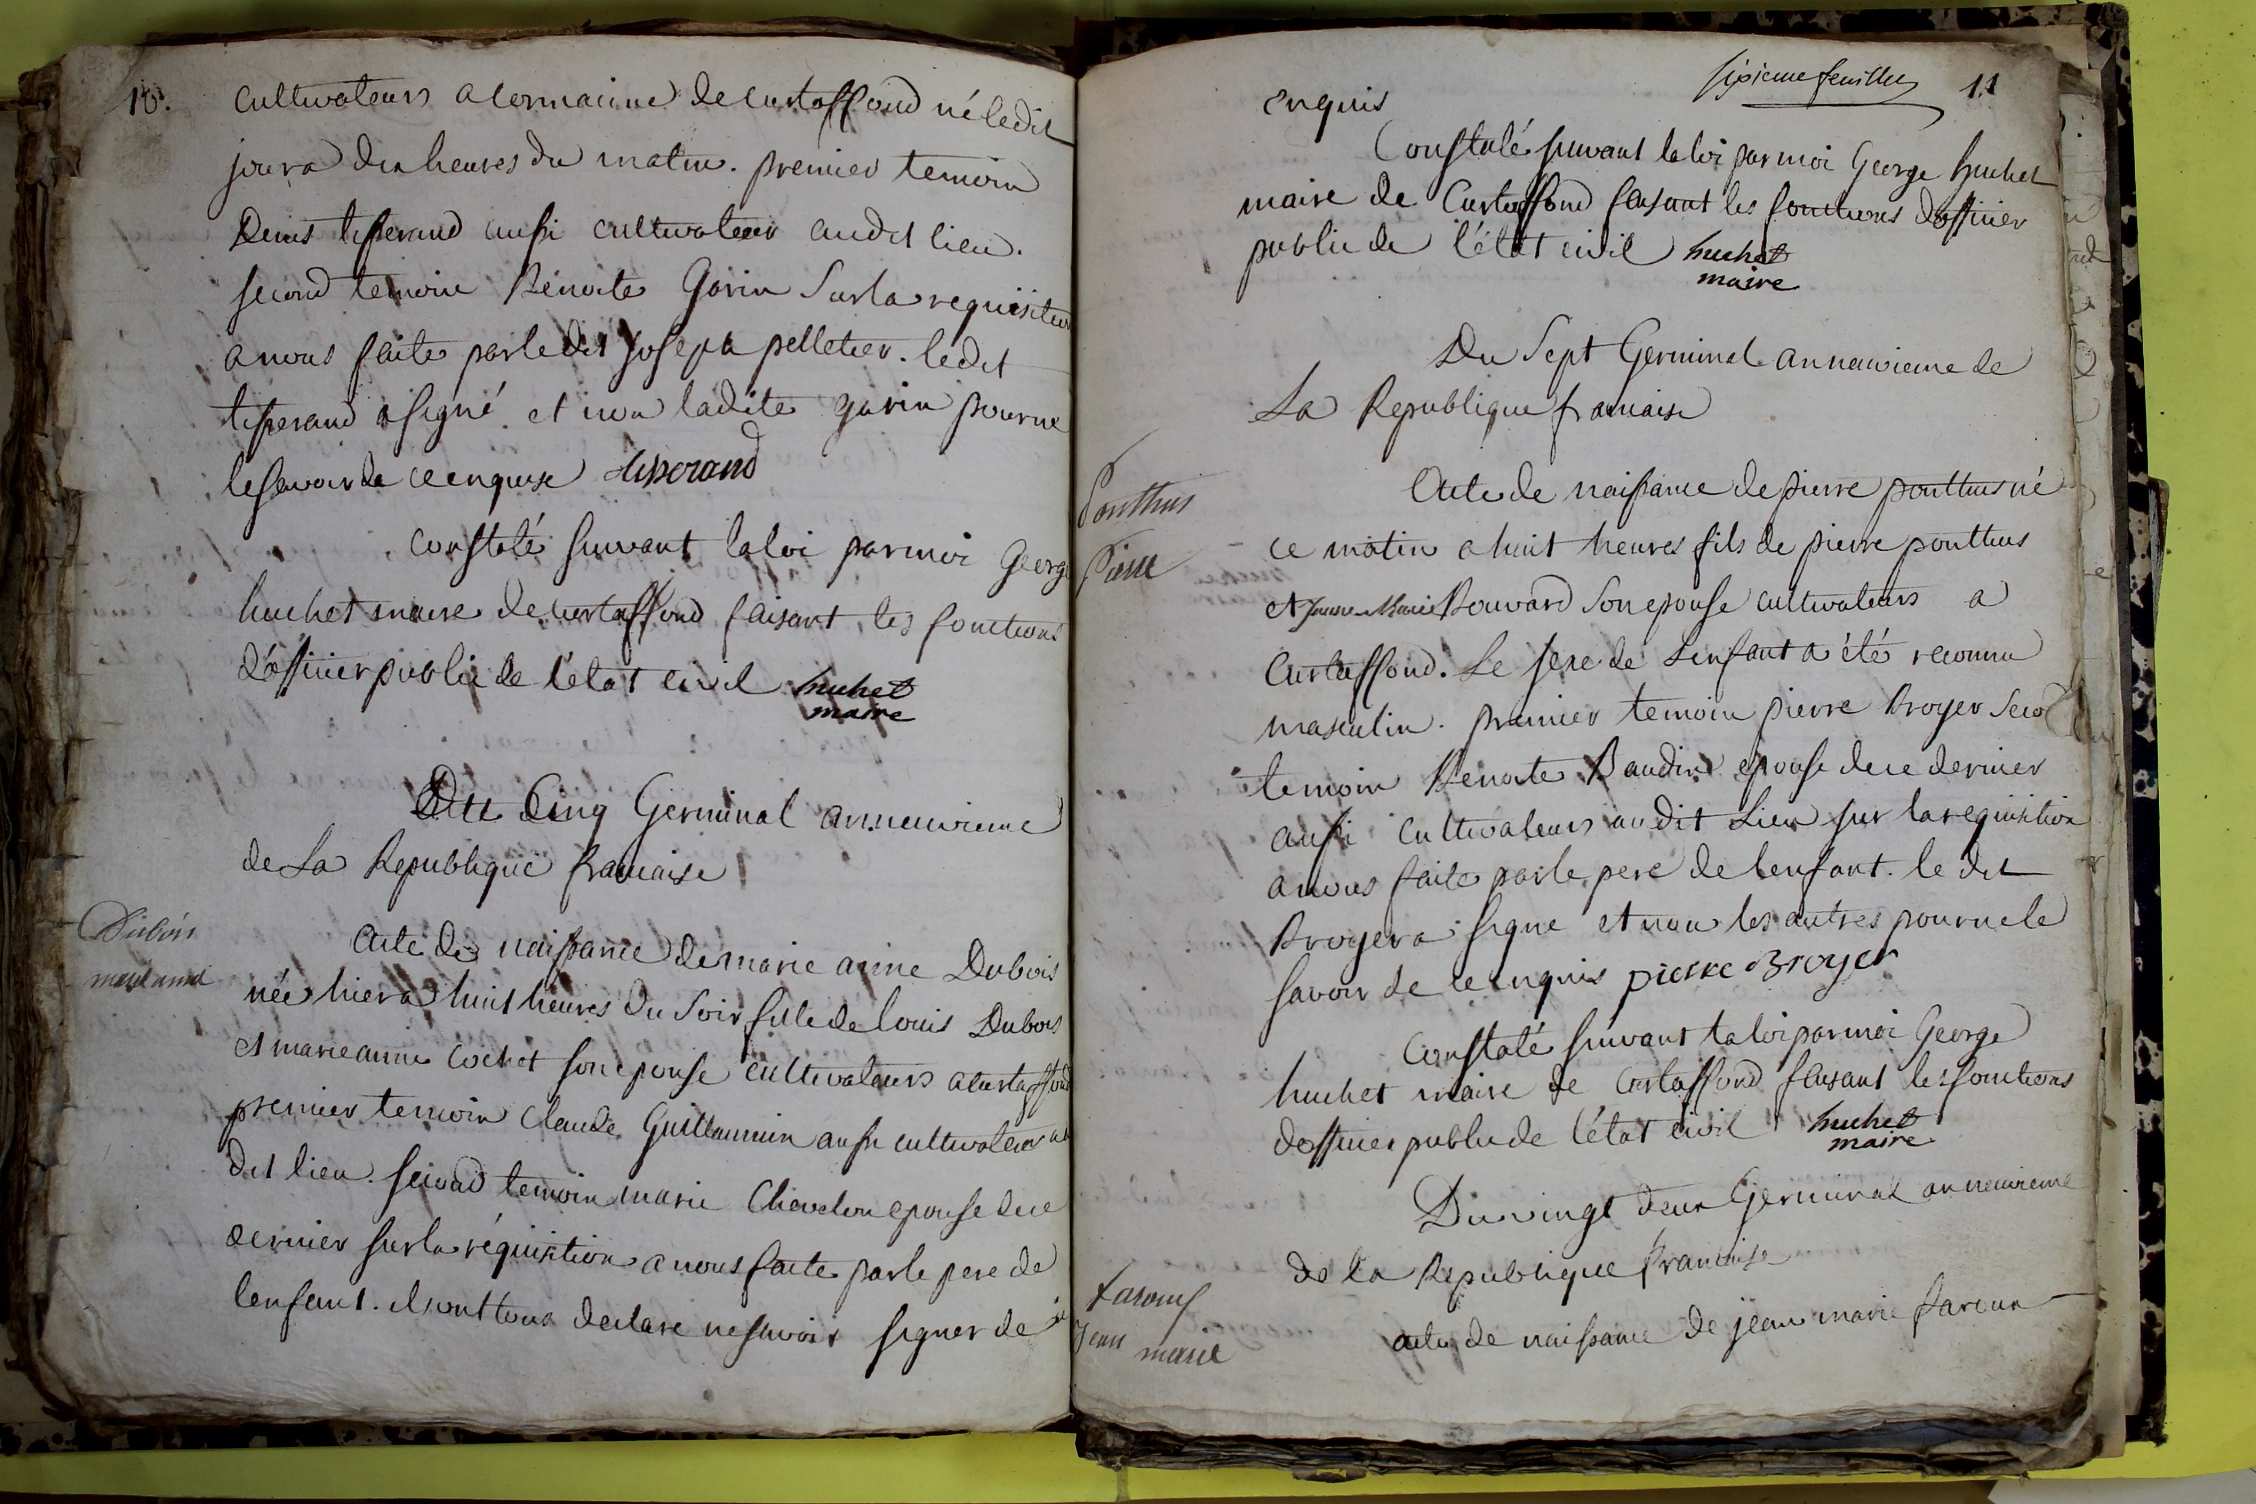 10.
cultivateurs a cormacine de curtaffond né ledit
jour a dix heures du matin. premier temoin
Denis tisserand aussi cultivateur audit lieu.
second temoin Benoite Gorin Sur la requisition
a nous faite par le dit joseph pelletier. le dit
tisserand a signé et non ladite gorin pour ne
le savoir de ce enquise tisserand
Constaté suivant la loi par moi George
huchet maire de curtaffond faisant les fonctions
d'officier public de l'etat civil huchet
maire
Du Cinq Germinal an neuvieme
de La Republique francaise
Dubois
marianne
Acte de naissance de marie anne Dubois
née hier a huit heures du Soir fille de louis Dubois
et marie anne cochet son epouse cultivateurs a curtaffond
premier temoin Claude Guillaumin aussi cultivateur au
dit lieu. second temoin marie Chevelon epouse de ce
dernier sur la réquisition a nous faite par le pere de
lenfant. ils ont tous declaré ne savoir signer de ce
sixieme feuillet 11
enquis
Constaté suivant la loi par moi George huchet
maire de Curtaffond faisant les fonctions d'officier
public de l'état civil huchet
maire
Du Sept Germinal an neuvieme de
La Republique francaise
Ponthus
Pierre
Acte de naissance de pierre ponthus né
ce matin a huit heures fils de pierre ponthus
et jeanne Marie Bouvard son epouse cultivateurs a
Curtaffond. Le sexe de Lenfant a été reconnu
masculin. premier temoin pierre Broyer Second
temoin Benoite Baudin epouse de ce dernier
aussi cultivateurs audit Lieu sur la requisition
a nous faite par le pere de lenfant. le dit
Broyer a signe et non les autres pour ne le
savoir de ce enquis pierre Broyer
Constaté suivant la loi par moi George
huchet maire de Curtaffond faisant les fonctions
dofficier public de l'état civil huchet
maire
Du vingt deux Germinal an neuvieme
de la Republique francaise
Jean marie
acte de naissance de jean marie